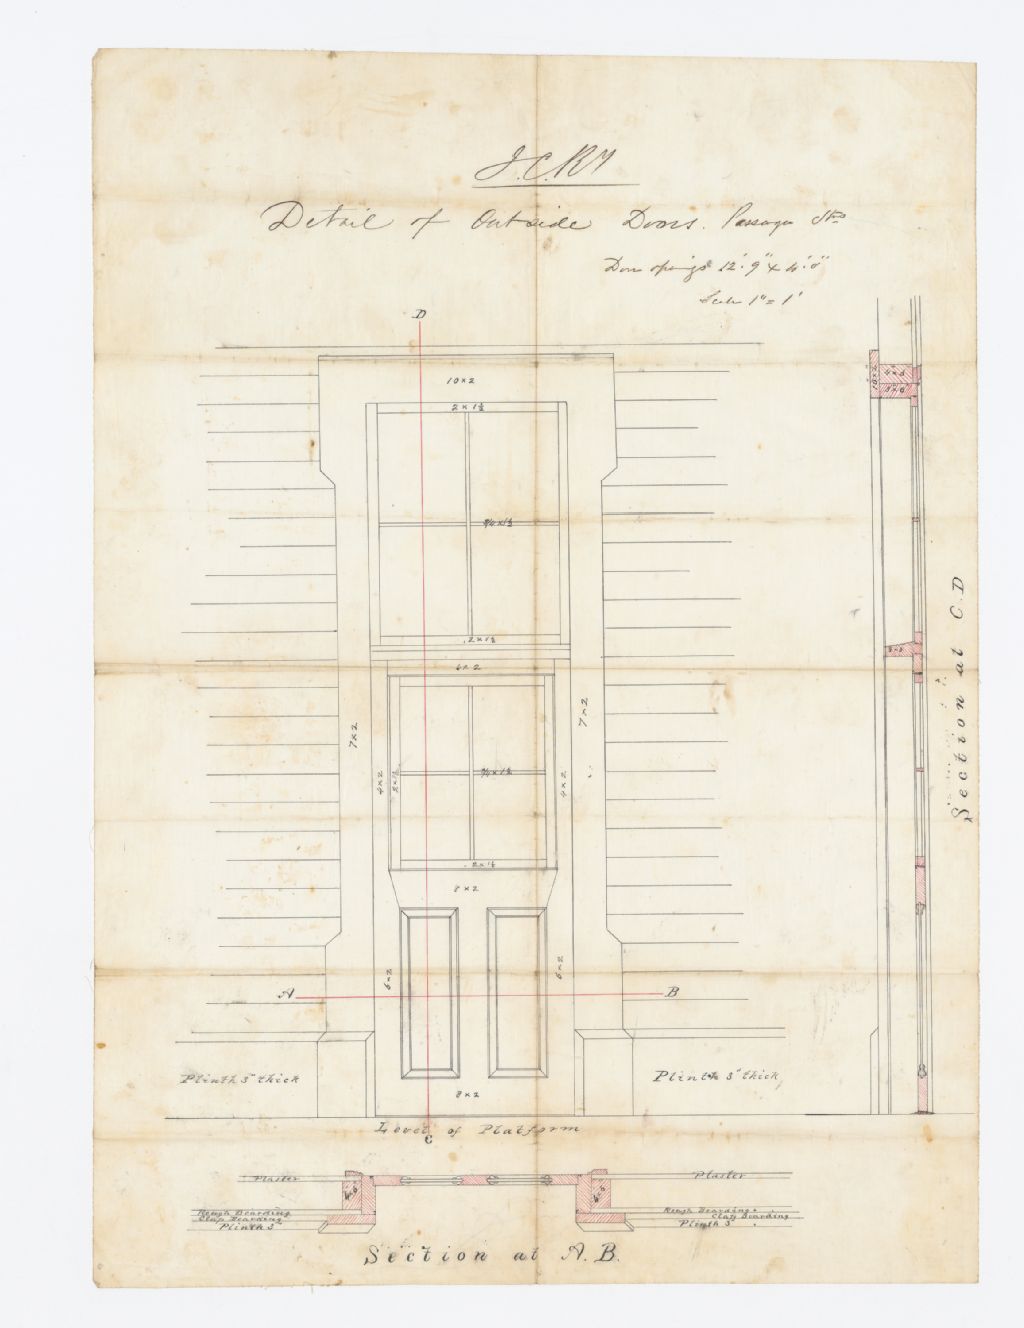 I.C.RY
Detail of Outside Doors. Passage Stns
Door openings 12'. 9" x 4'. 0"
Scale 1" = 1'
D
10 x 2
2 x 1½
10 x 2
¾ x 1½
2 x 1½
6 x 2
7 x 2
7 x 2
4 x 2
2 x 1½
¾ x 1½
4 x 2
2 x 1½
8 x 2
6 x 2
6 x 2
A
B
Plinth 3" thick
Plinth 3" thick
8 x 2
Level of Platform
C
Section at C.D
Plaster
Plaster
4 x 6
4 x 6
Rough Boarding
Clap Boarding
Plinth 3"
Rough Boarding
Clap Boarding
Plinth 3"
Section at A.B.